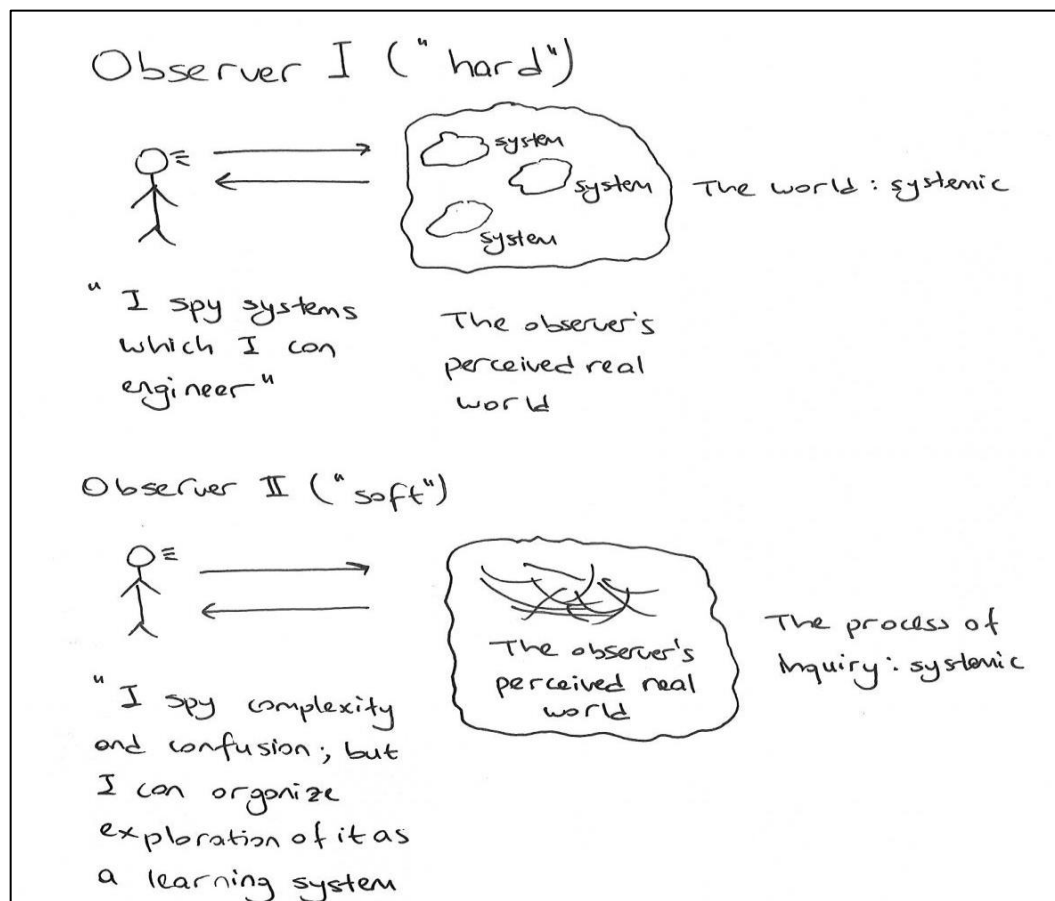 Observer I ("hard")
system
system
system
The world : systemic
"I spy systems
which I can
engineer"
The observer's
perceived real
world
Observer II ("soft")
The observer's
perceived real
world
The process of
inquiry : systemic
"I spy complexity
and confusion; but
I can organize
exploration of it as
a learning system